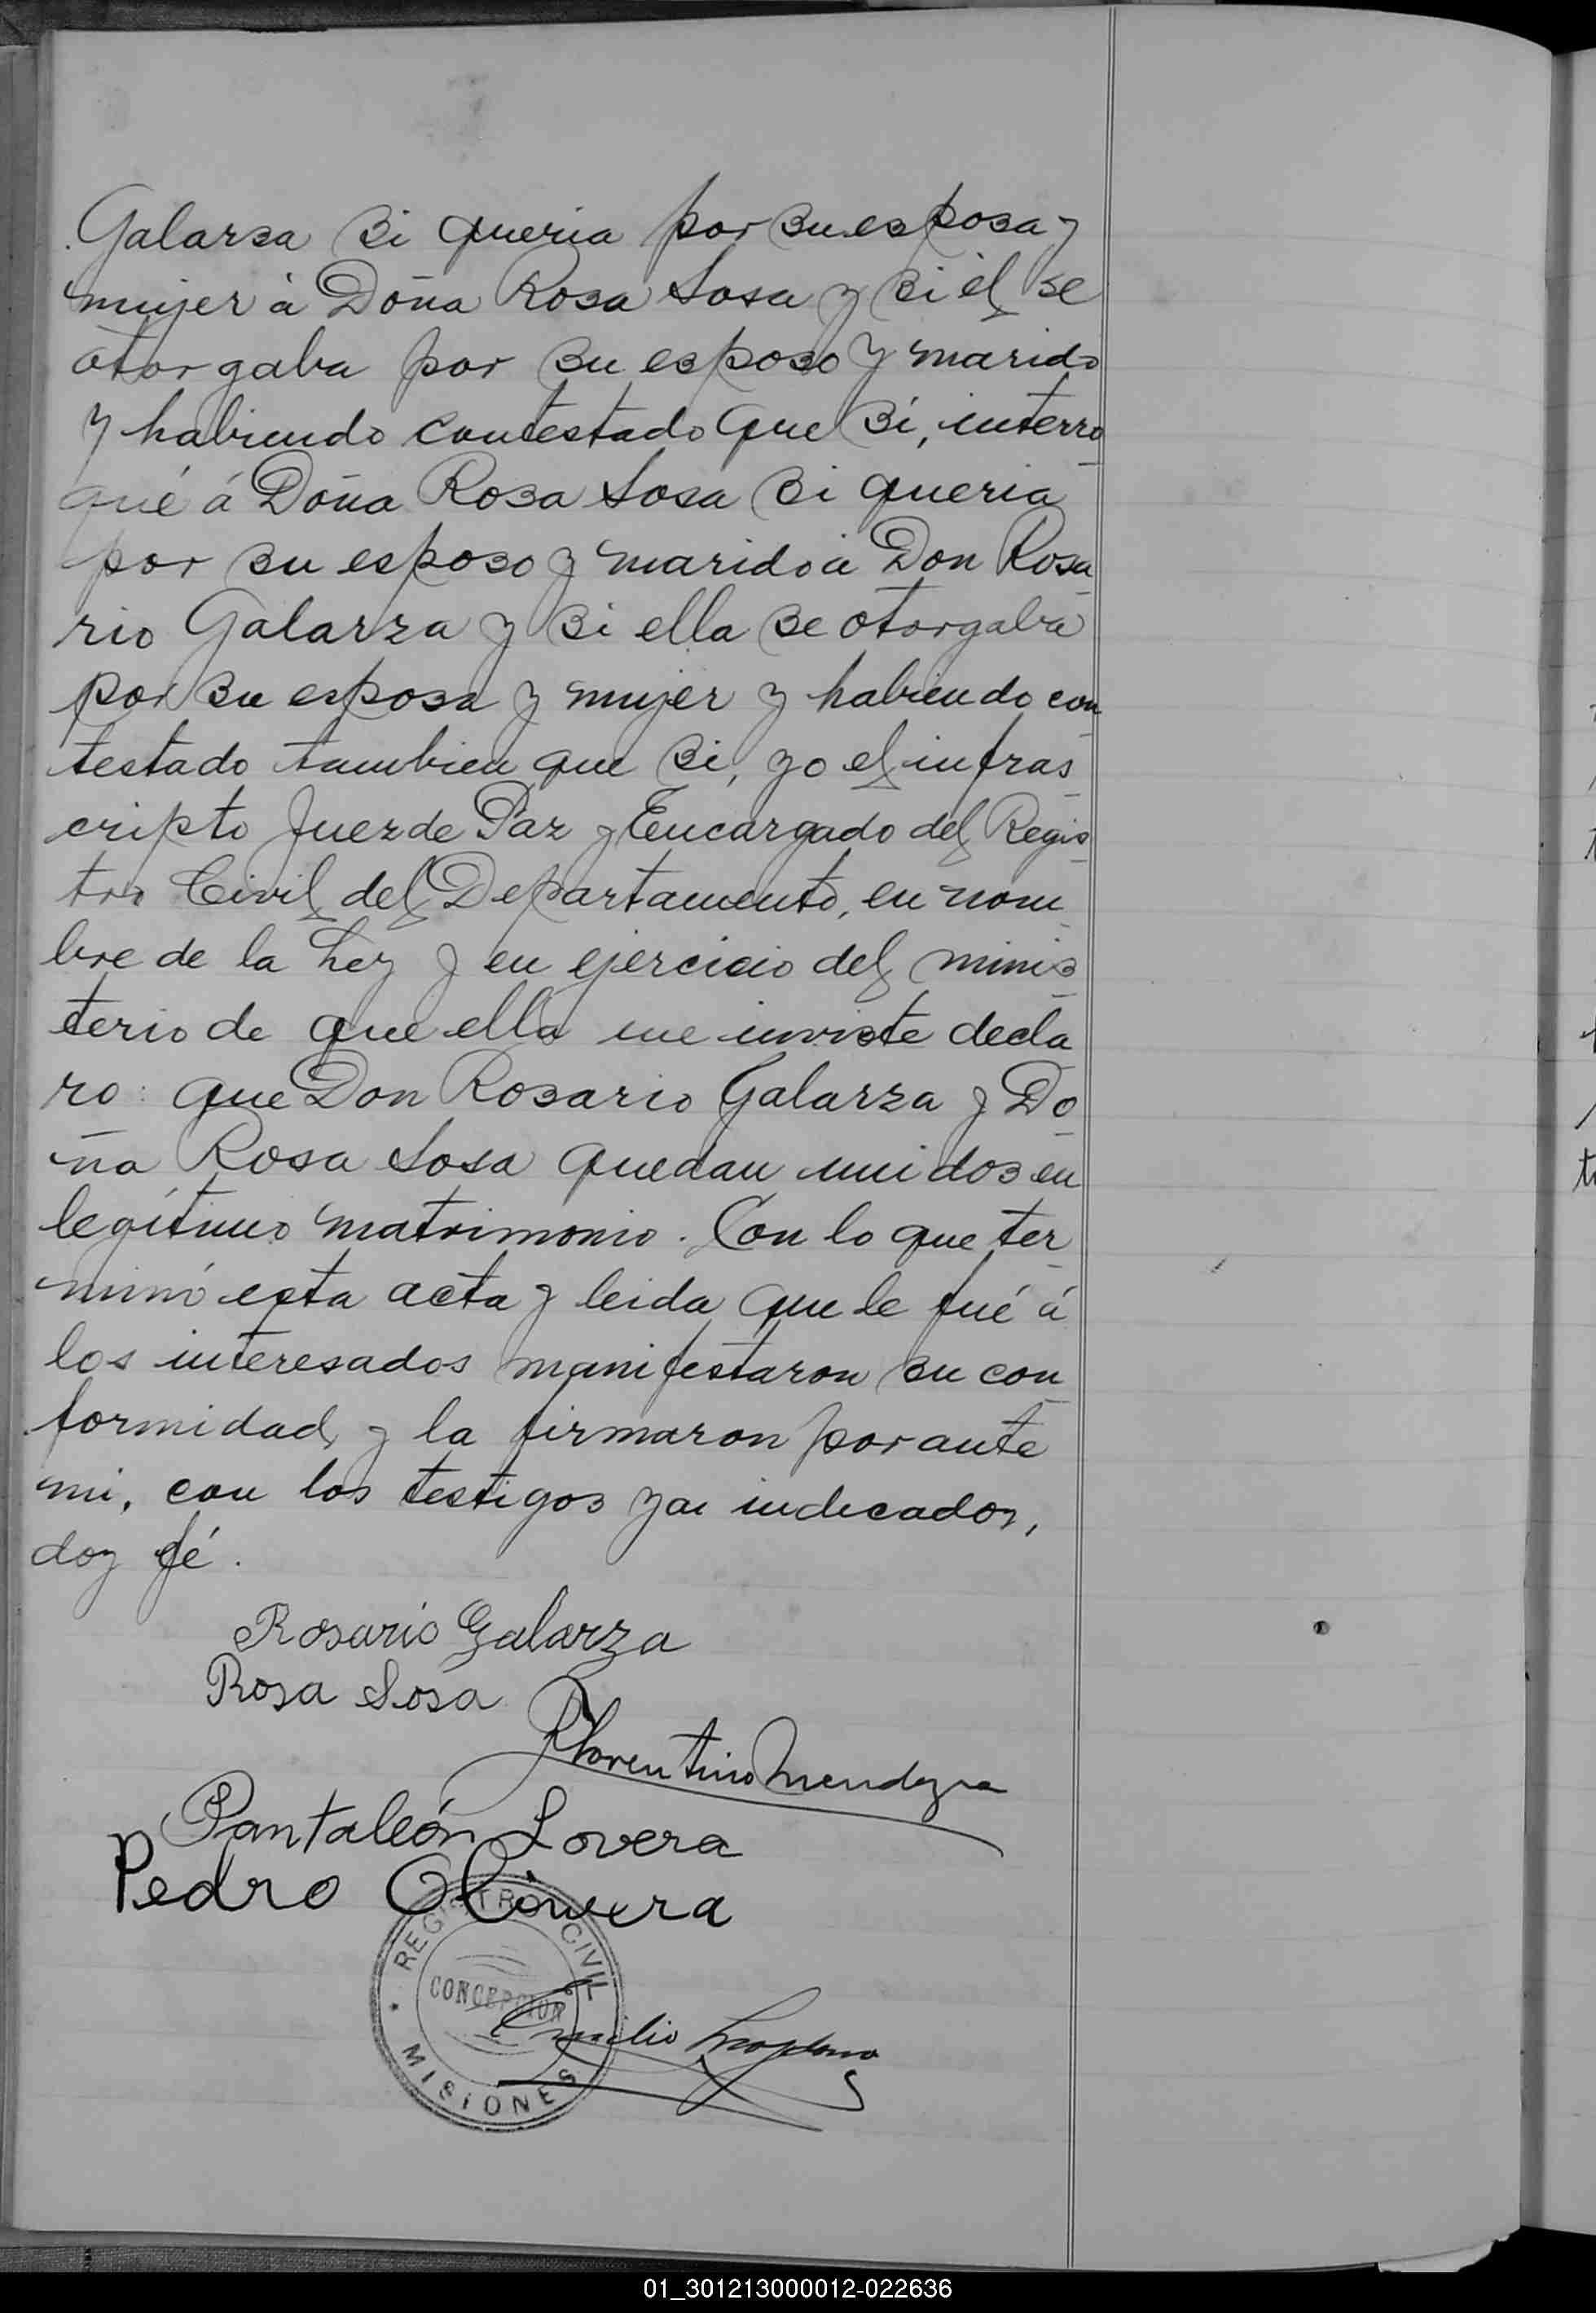 Galarsa si queria por su esposa y
mujer à Doña Rosa Sosa y si él se
otorgaba por su esposo y marido
y habiendo contestado que si, interro
gué á Doña Rosa Sosa si queria
por su esposo y marido á Don Rosa
rio Galarza y si ella se otorgaba
por su esposa y mujer y habiendo con
testado tambien que si, yo el infras
cripto Juez de Paz y Encargado del Regis
tro Civil del Departamento, en nom
bre de la Ley y en ejercicio del minis
terio de que ella me inviste decla
ro: que Don Rosario Galarza y Do
ña Rosa Sosa quedan unidos en
legítimo matrimonio. Con lo que ter
minó esta acta y leida que le fué á
los interesados manifestaron su con
formidad, y la firmaron por ante
mi, con los testigos ya indicados,
doy fé.
Rosario Galarza
Rosa Sosa
Florentino Mendoza
Pantaleón Lovera
Pedro Olivera
REGISTRO CIVIL
CONCEPCION
MISIONES
Emilio
01_301213000012-022636